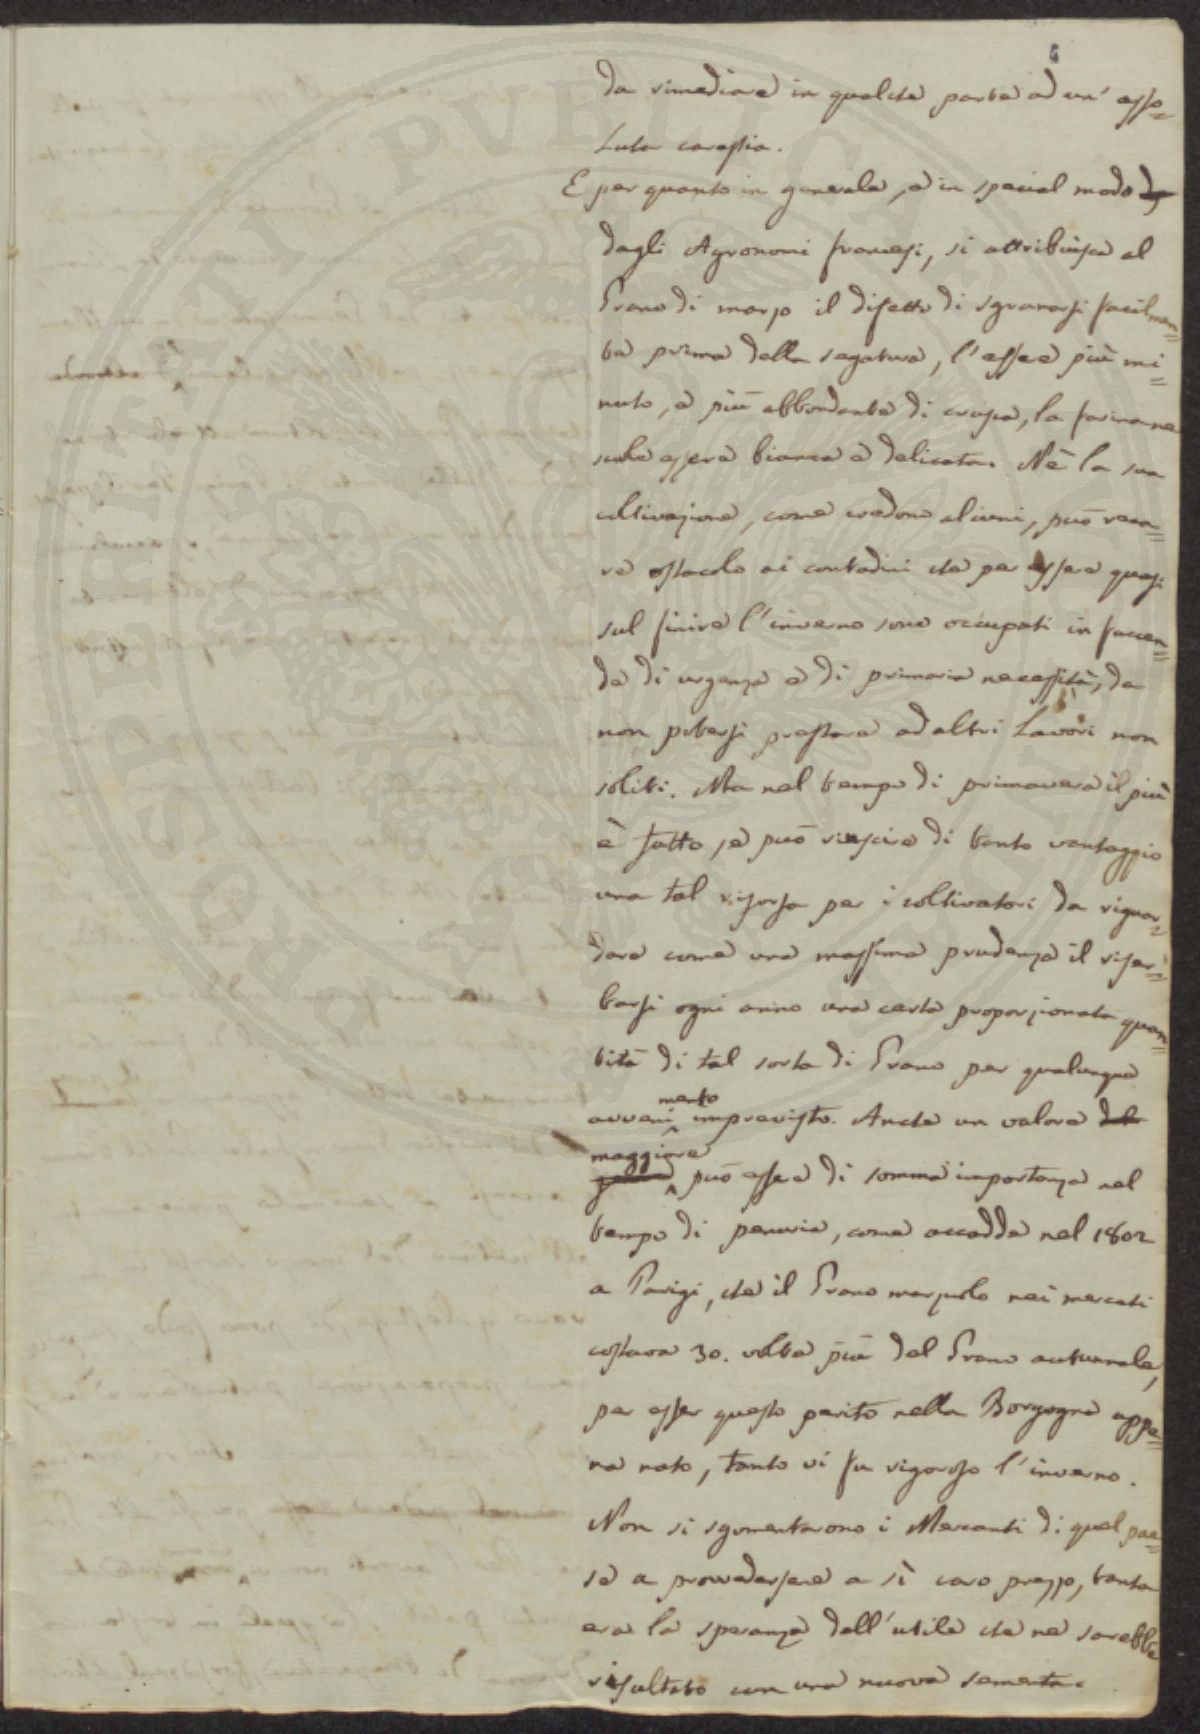 da rimediare in qualche parte ad un' asso=
luta carestia.
E per quanto in generale, e in special modo
dagli Agronomi francesi, si attribuisca al
Grano di marzo il difetto di sgranarsi facilmen=
te prima della segatura, l'essere più mi=
nuto, e più abbondante di crusca, la farina ne
suole essere bianca e delicata. Nè la sua
coltivazione, come credono alcuni, può reca=
re ostacolo ai contadini che per essere quasi
sul finire l'inverno sono occupati in faccen=
de di urgenza e di primaria necessità, da
non potersi prestare ad altri lavori non
soliti. Ma nel tempo di primavera il più
è fatto, e può riescire di tanto vantaggio
una tal risorsa per i coltivatori da riguar=
dare come una massima prudenza il riser=
barsi ogni anno una certa proporzionata quan=
tità di tal sorta di Grano per qualunque
mento
avveni imprevisto. Anche un valore del
maggiore
può essere di somma importanza nel
tempo di penuria, come accadde nel 1802
a Parigi, che il Grano marzuolo nei mercati
costava 30. volte più del Grano autunnale,
per esser questo perito nella Borgogna appe=
na nato, tanto vi fu rigoroso l'inverno.
Non si sgomentarono i Mercanti di quel pae=
se a provvedersene a sì caro prezzo, tanta
era la speranza dell'utile che ne sarebbe
risultato con una nuova sementa.
PROSPERITATI PVBLICAE